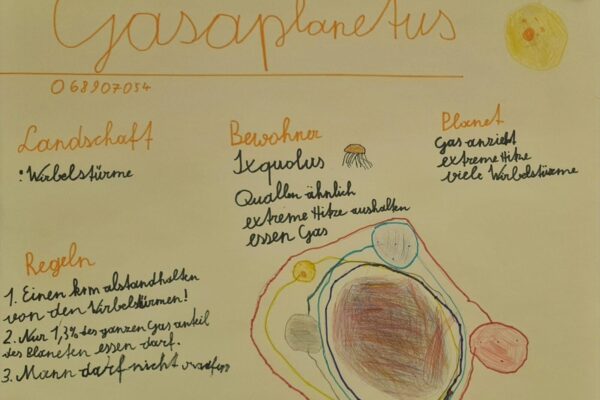 Gasaplanetus
068907054
Landschaft
: Wirbelstürme
Bewohner
Ixquolus
Quallen ähnlich
extreme Hitze aushalten
essen Gas
Planet
Gas anzieht
extreme Hitze
viele Wirbelstürme
Regeln
1. Einen krm alstandhalten
von den Wirbelstürmen!
2. Nur 1,3% des ganzen Gas anteil
des Planeten essen darf.
3. Mann darf nicht